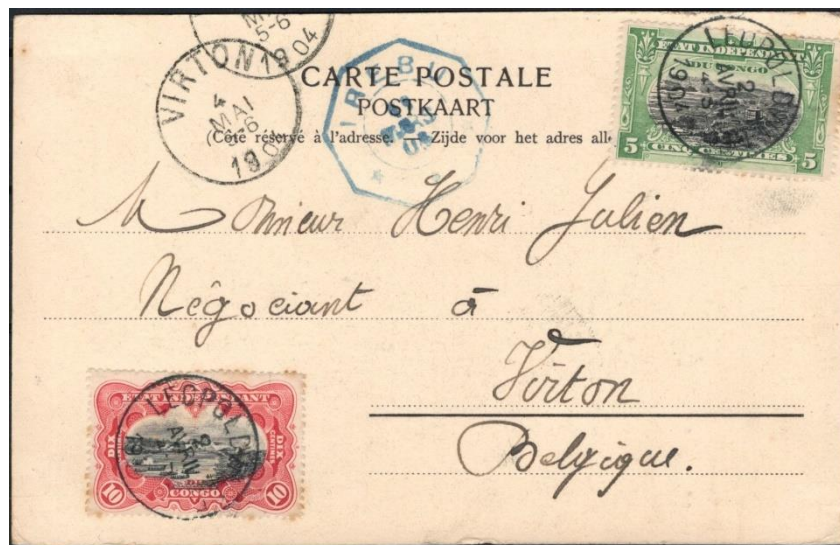 MAI
5-6
1904
VIRTON
4
MAI
190
CARTE POSTALE
POSTKAART
(Côté réservé à l'adresse. — Zijde voor het adres all
ETAT INDEPENDANT
DU CONGO
5 5
CINQ CENTIMES
LEOPOLDV
2
AVRIL
4-5
Monsieur Henri Julien
Négociant à
Virton
Belgique.
ETAT INDEPENDANT
DIX CENTIMES
DIX CENTIMES
10 10
CONGO
LEOPOLDV
2
AVRIL